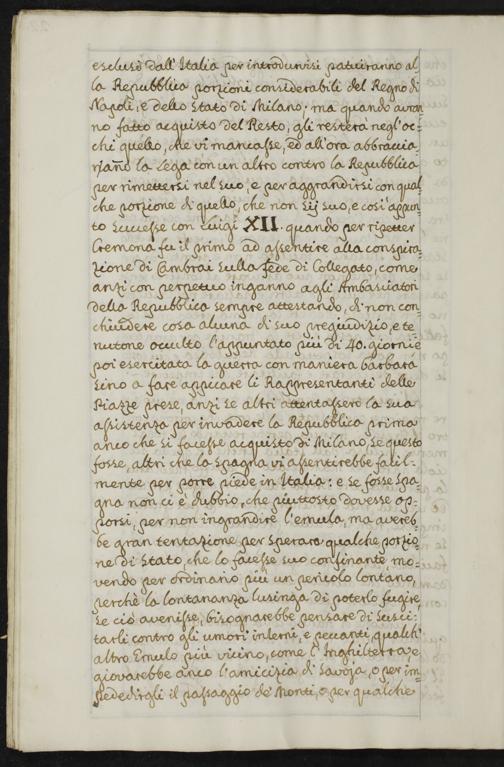 esclusi dall'Italia per introdurvisi patuiranno al=
la Republica porzioni considerabili del Regno di
Napoli, e dello Stato di Milano; ma quando avran=
no fatto acquisto del Resto, gli resterà negl'oc=
chi quello, che vi mancasse, ed all'ora abbraccia=
rjano la Lega con un altro contro la Republica
per rimettersi nel suo, e per aggrandirsi con qual
che porzione di quello, che non sij suo, e così appun=
to successe con Luigi XII. quando per ripetter
Cremona fu il primo ad assentire alla conspira=
zione di Cambrai sulla fede di Collegato, come
anzi con perpetuo inganno agli Ambasciatori
della Republica sempre attestando, di non con=
chiudere cosa alcuna di suo pregiudizio, e te=
nutone occulto l'appuntato più di 40. giorni, e
poi esercitata la guerra con maniera barbara
sino a fare appicare li Rappresentanti delle
Piazze prese, anzi se altri attentassero la sua
assistenza per invadere la Republica prima
anco che si facesse acquisto di Milano, se questo
fosse, altri che la Spagna vi assentirebbe facil=
mente per porre piede in Italia: e se fosse Spa=
gna non ci è dubbio, che piuttosto dovesse op=
porsi, per non ingrandire l'emula, ma avereb=
be gran tentazione per sperare qualche porzio=
ne di Stato, che lo facesse suo confinante, mo=
vendo per ordinario più un pericolo lontano,
perchè la lontananza lusinga di poterlo fugire,
se ciò avenisse, bisognarebbe pensare di susci=
tarli contro gli umori interni, e peccanti, qualch'
altro Emulo più vicino, come l'Inghilterra, e
giovarebbe anco l'amicizia di Savoja, o per im=
pedidirgli il passaggio de' Monti, o per qualche